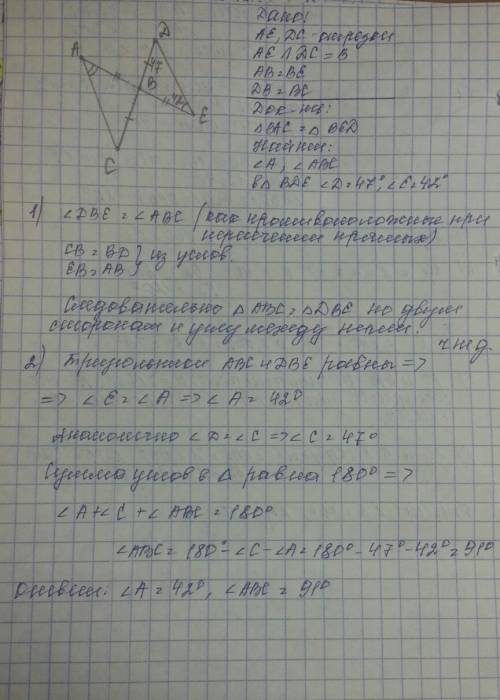 Дано:
AE, DC - отрезки
AE ∩ DC = B
AB = BE
DB = BC
Док-ть:
△BAC = △BED
Найти:
∠A, ∠ABC
в △ BDE ∠D=47°, ∠E=42°
D
A
47
B
42
E
C
1) ∠DBE = ∠ABC (как противоположные при
пересечении прямых)
CB = BD } из услов.
EB = AB }
Следовательно △ABC = △DBE по двум
сторонам и углу между ними.
ч.т.д.
2) Треугольники ABC и DBE равны =>
=> ∠E = ∠A => ∠A = 42°
Аналогично ∠D = ∠C => ∠C = 47°
Сумма углов в △ равна 180° =>
∠A + ∠C + ∠ABC = 180°
∠ABC = 180° - ∠C - ∠A = 180° - 47° - 42° = 91°
Ответ: ∠A = 42°, ∠ABC = 91°